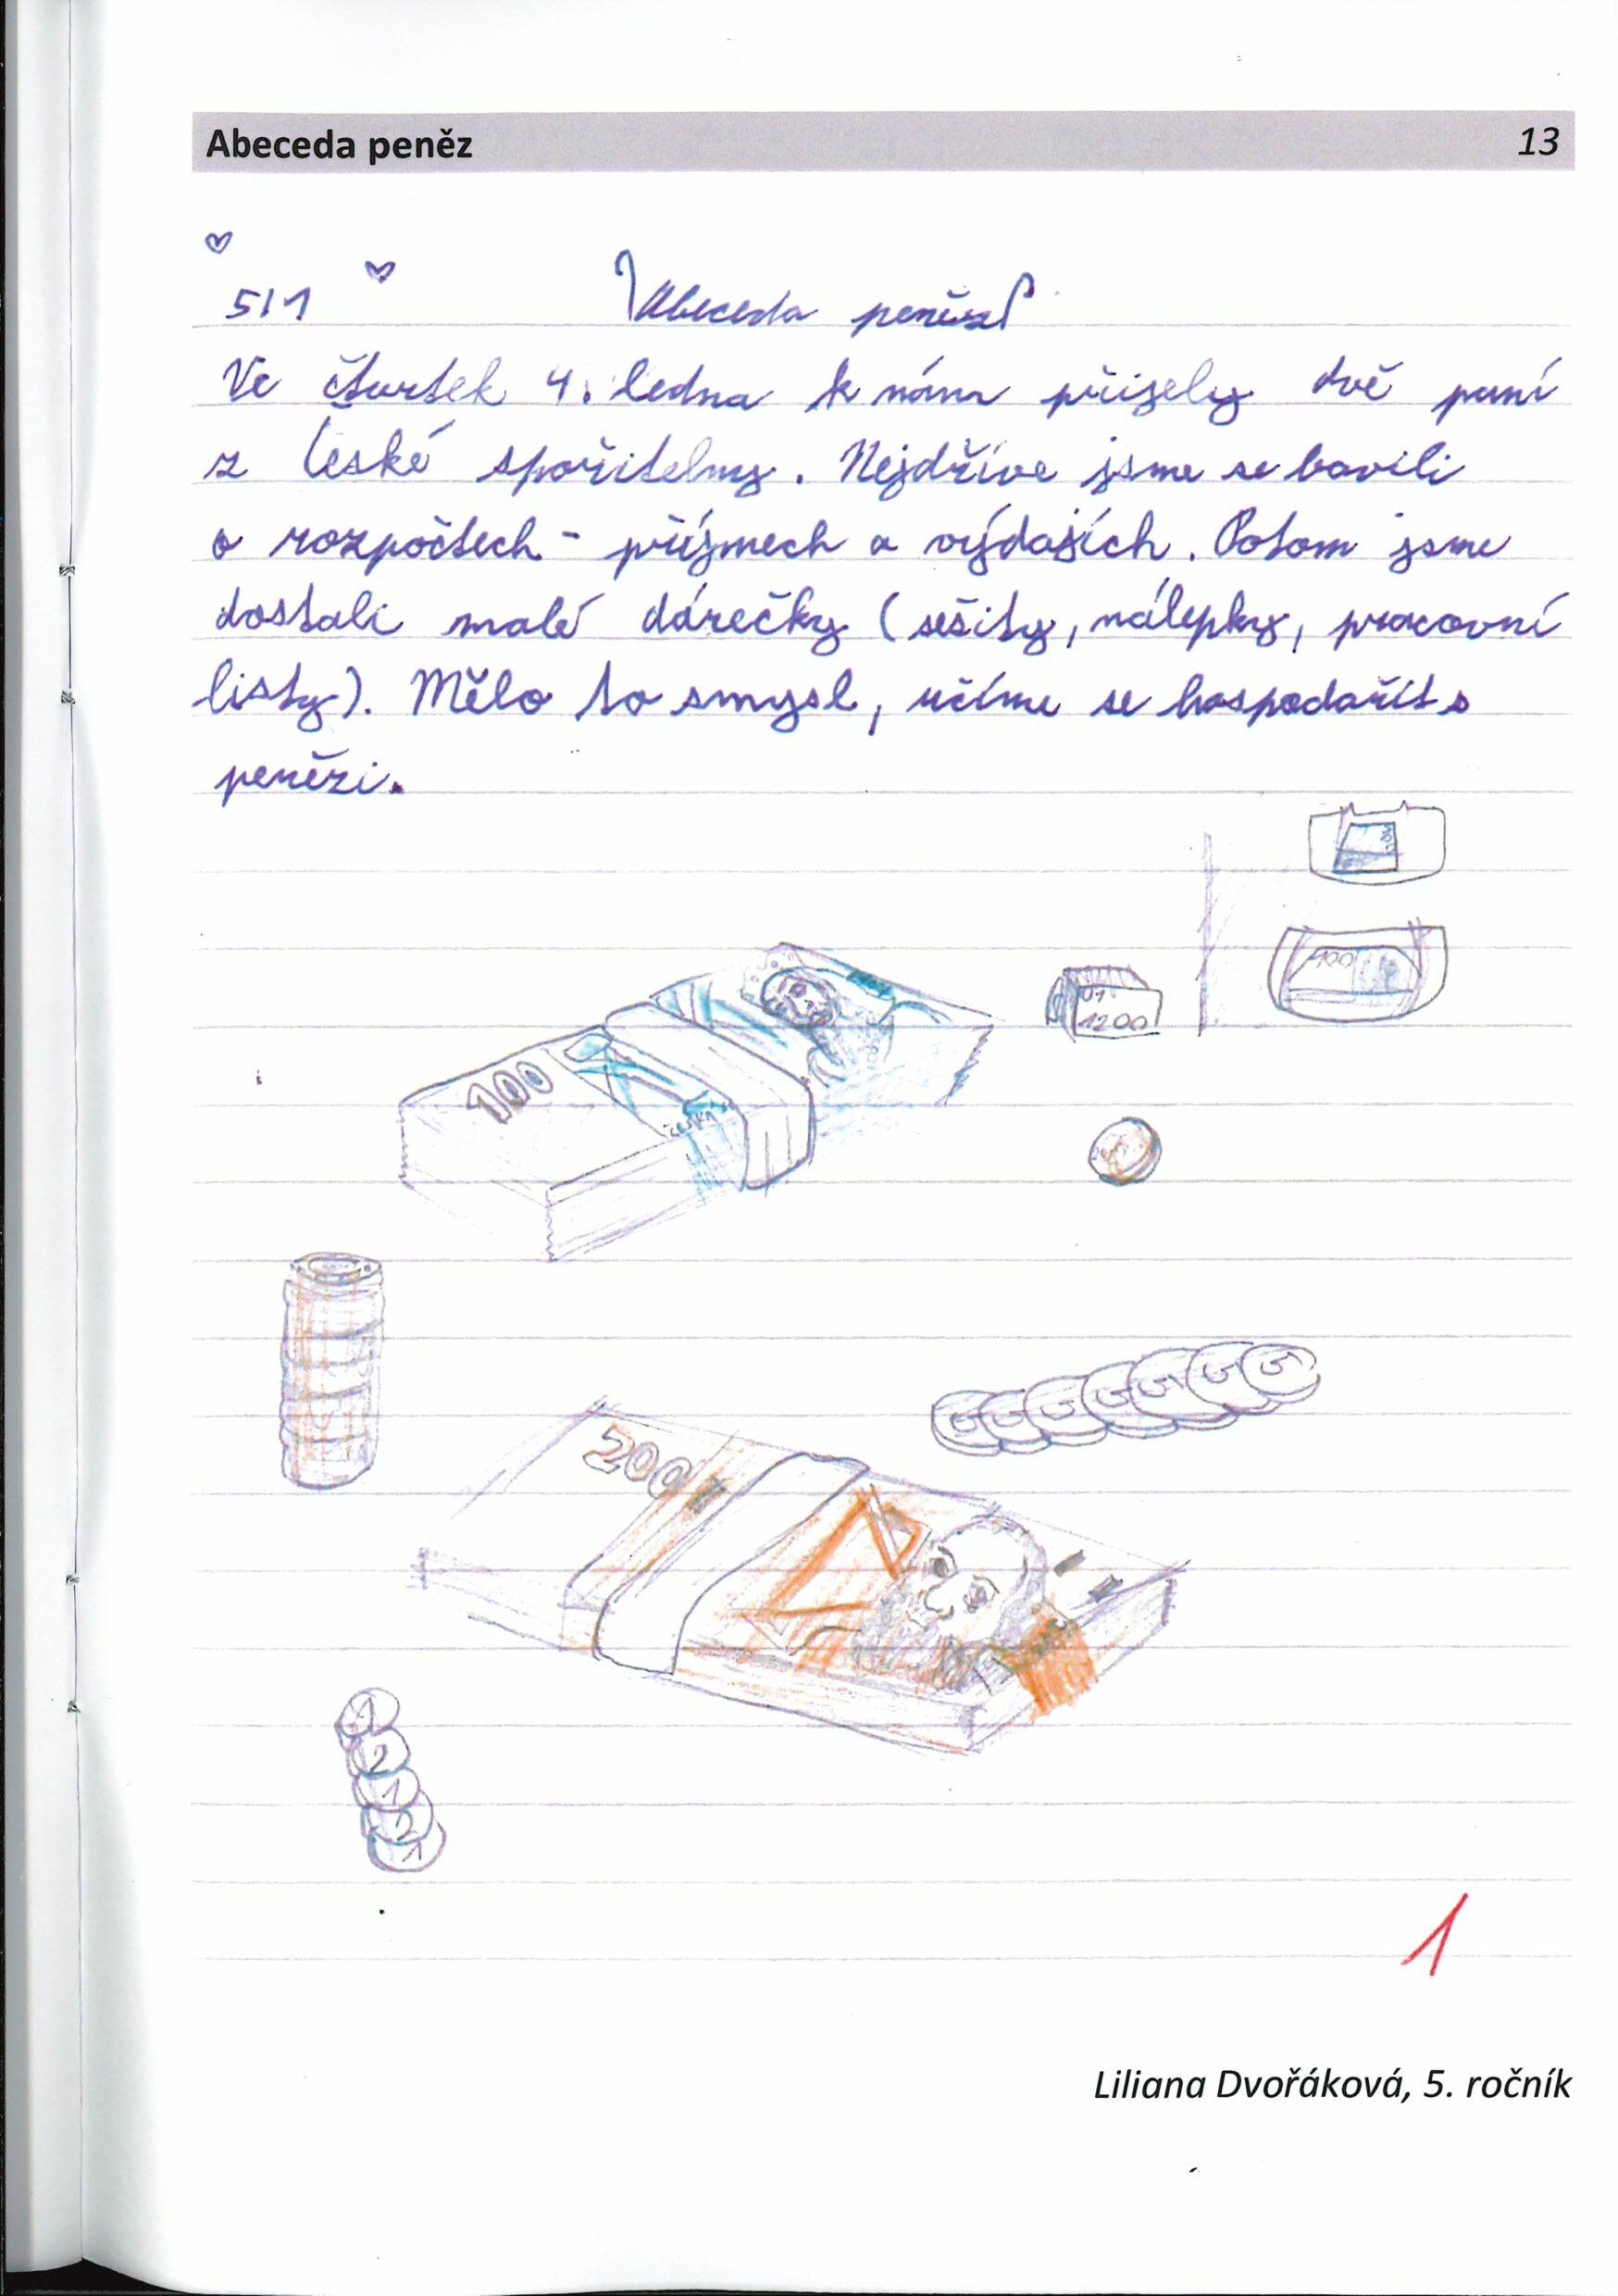 Abeceda peněz 13
5/1 Abeceda peněz
Ve čtvrtek 4. ledna k nám přisely dvě paní
z České spořitelny. Nejdříve jsme se bavili
o rozpočtech - příjmech a výdajích. Potom jsme
dostali malé dárečky (sešity, nálepky, pracovní
listy). Mělo to smysl, učíme se hospodařit s
penězi.
100
01
1200
100
200
5 5 5 5 5 5 5
1
2
1
2
1
1
Liliana Dvořáková, 5. ročník